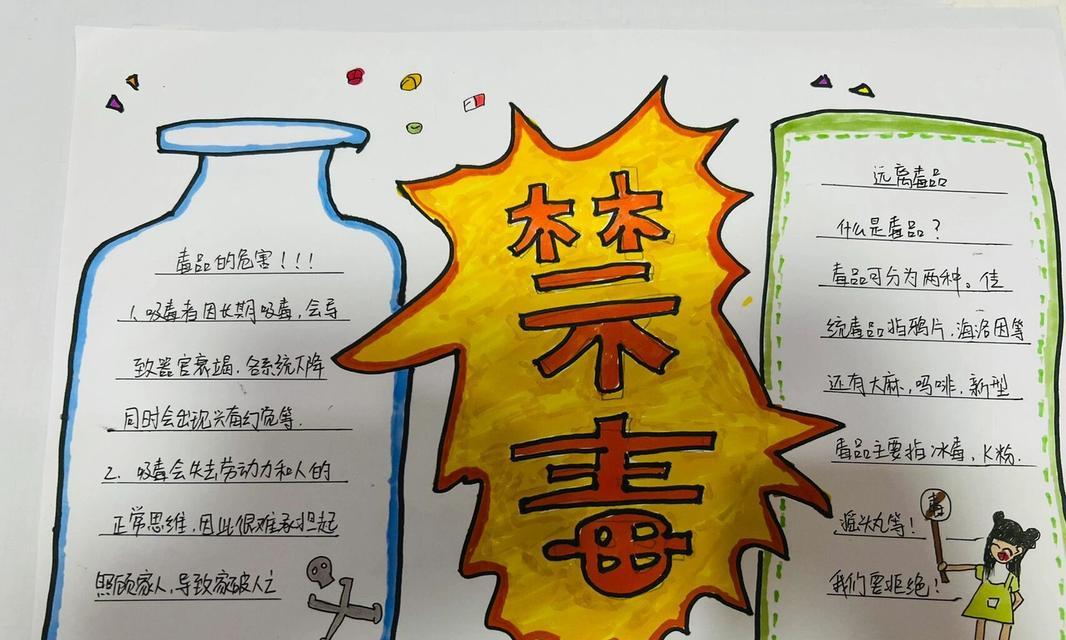 毒品的危害!!!
1、吸毒者因长期吸毒,会导
致器官衰竭.各系统下降
同时会出现兴奋幻觉等.
2. 吸毒会失去劳动力和人的
正常思维,因此很难承担起
照顾家人,导致家破人亡
禁毒
远离毒品
什么是毒品?
毒品可分为两种。传
统毒品指鸦片.海洛因等
还有大麻,吗啡.新型
毒品主要指冰毒,K粉.
摇头丸等!
我们要拒绝!
毒